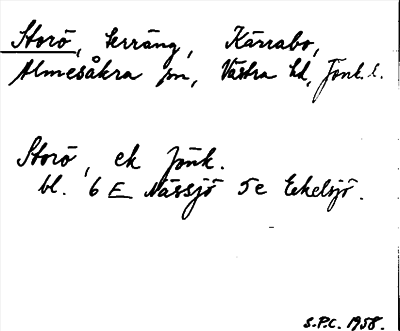 Storö, terräng, Kärrabo,
Almesåkra sn, Västra hd, Jönk. l.
Storö, ek Jönk.
bl. 6 E Nässjö 5e Ekelsjö.
S.P.C. 1958.